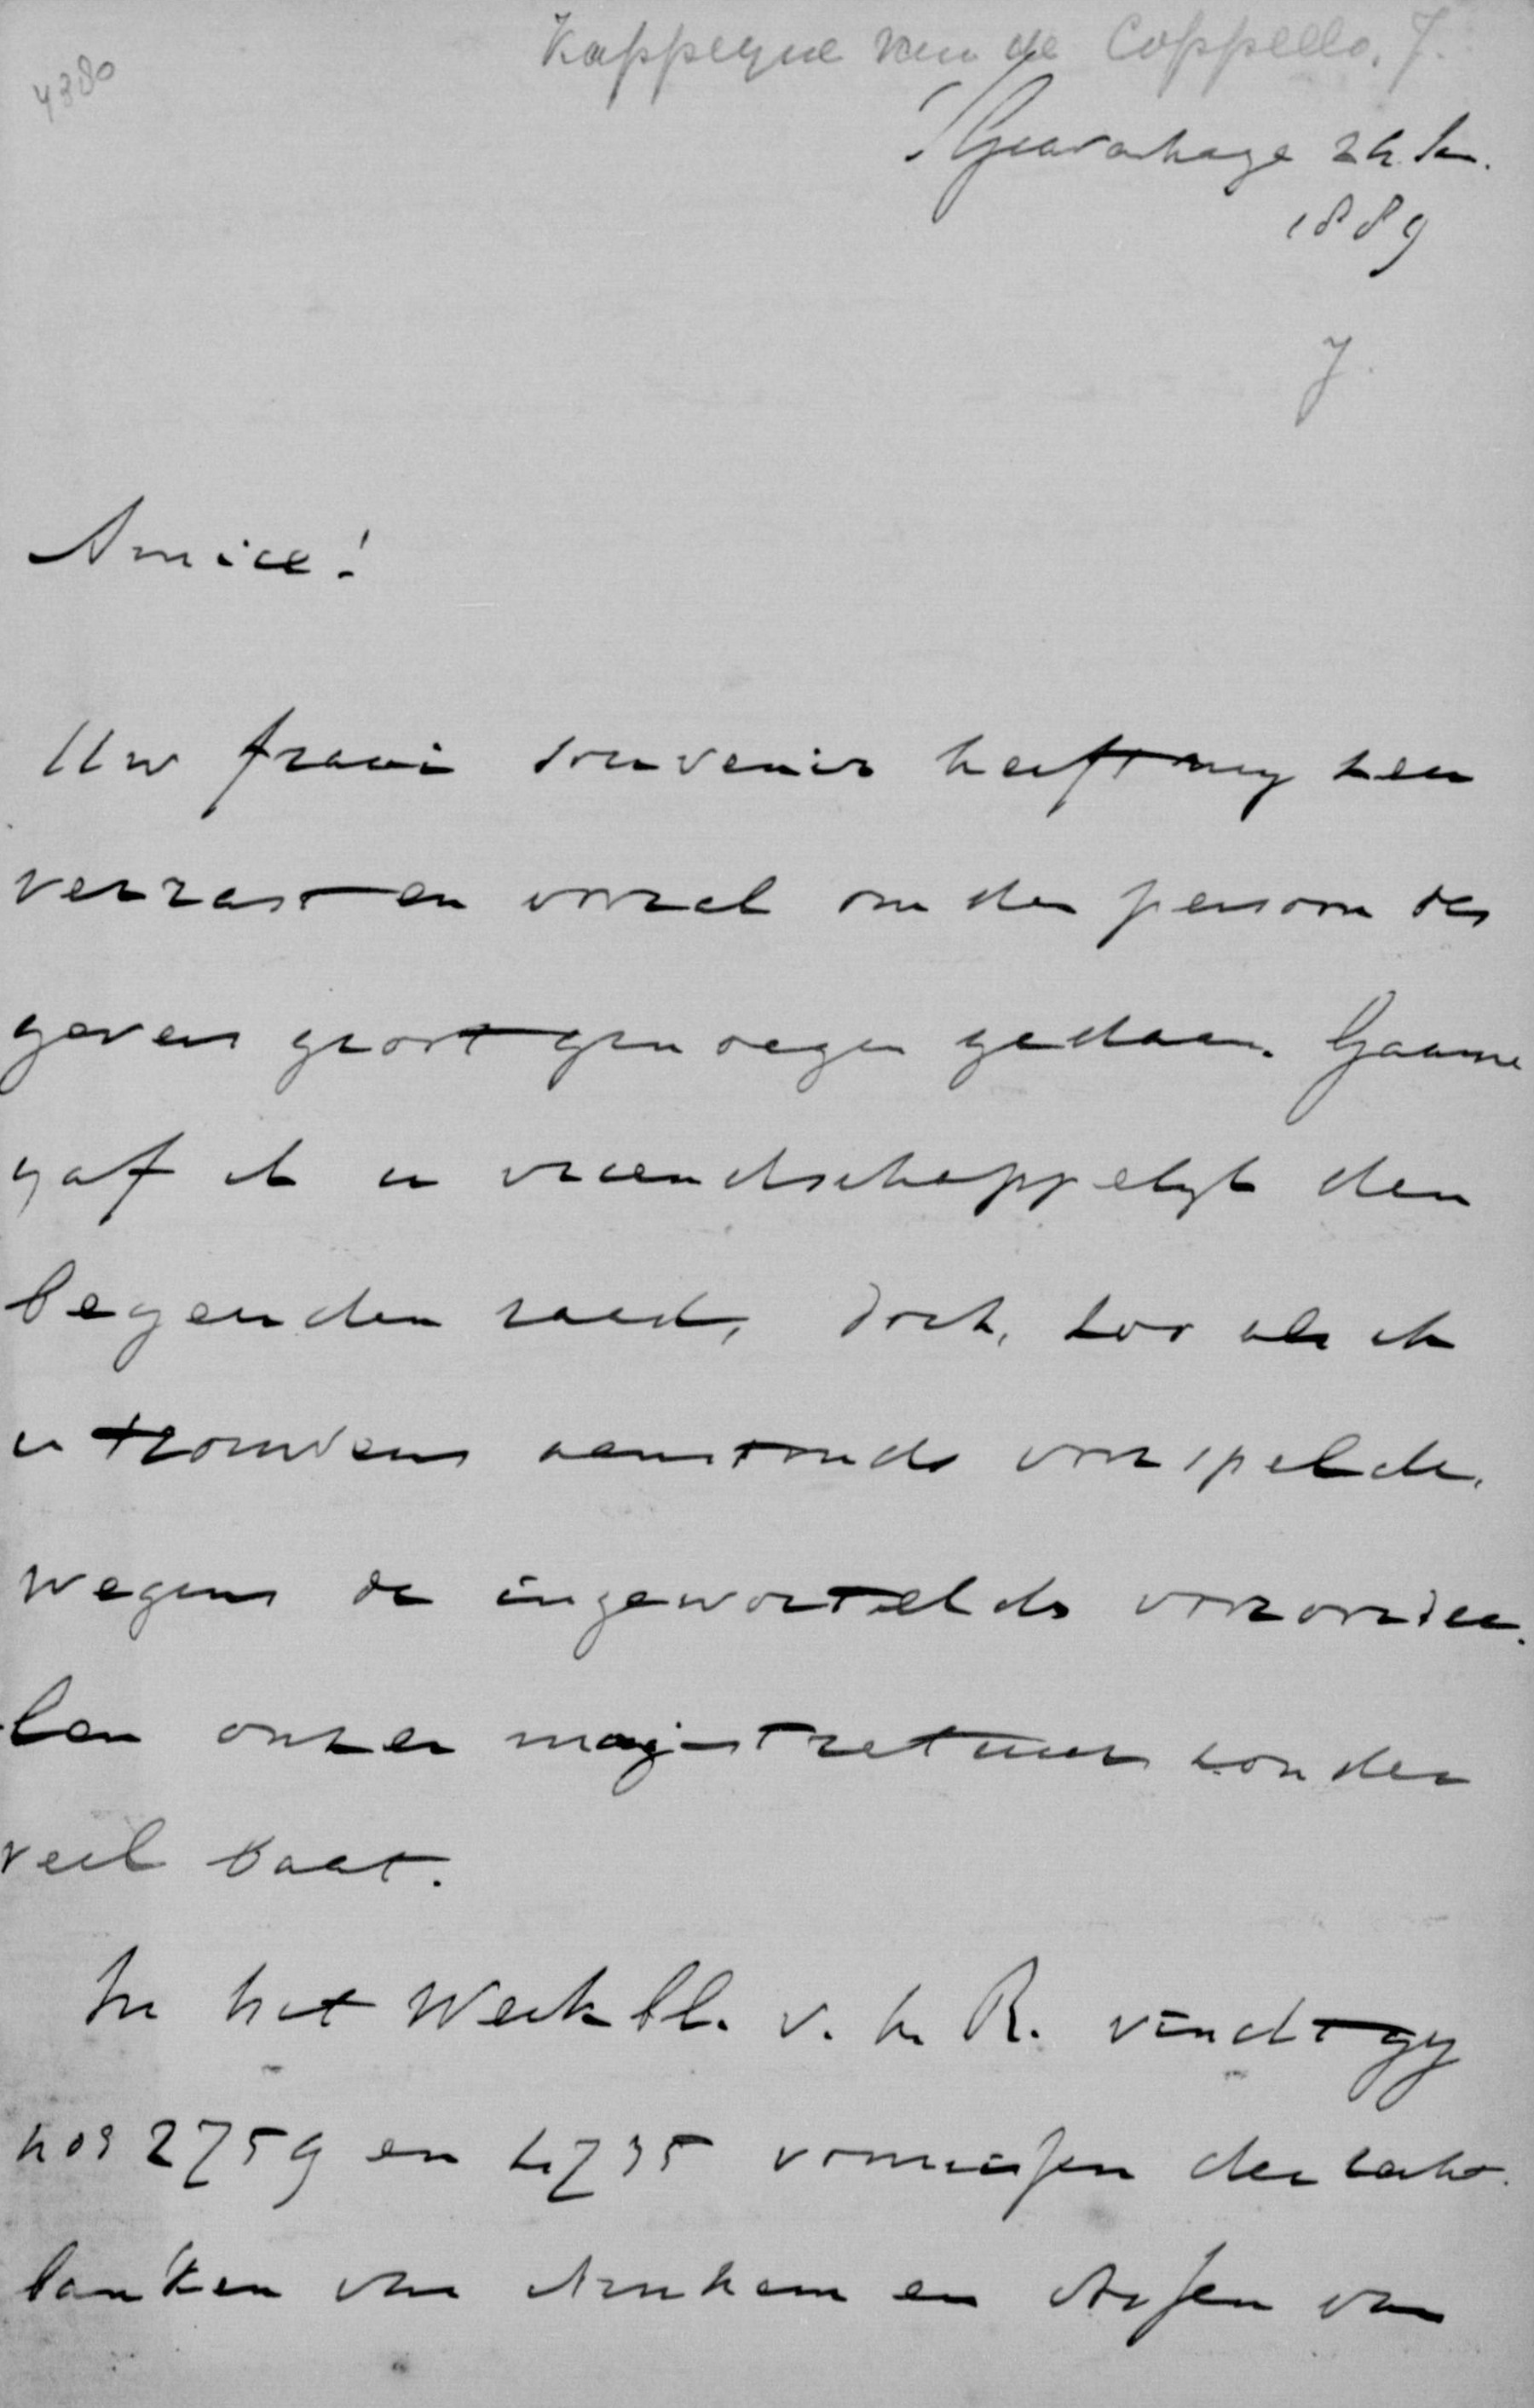 4380
Kappeyne van de Coppello. J.
'sGravenhage 24 Jan.
1889
J.
Amice!
Uw fraai souvenir heeft my zeer
verrast en vooral om den persoon des
gevers groot genoegen gedaan. Gaarne
gaf ik u vriendschappelyk den
begeerden raad, doch, zoo als ik
u trouwens aanstonds voorspelde,
wegens de ingewortelde vooroordee-
len onzer magistratuur zonder
veel baat.
In het Weekbl. v. h. R. vindt gy
nos 2759 en 4735 vonnissen der recht-
banken van Arnhem en Assen van